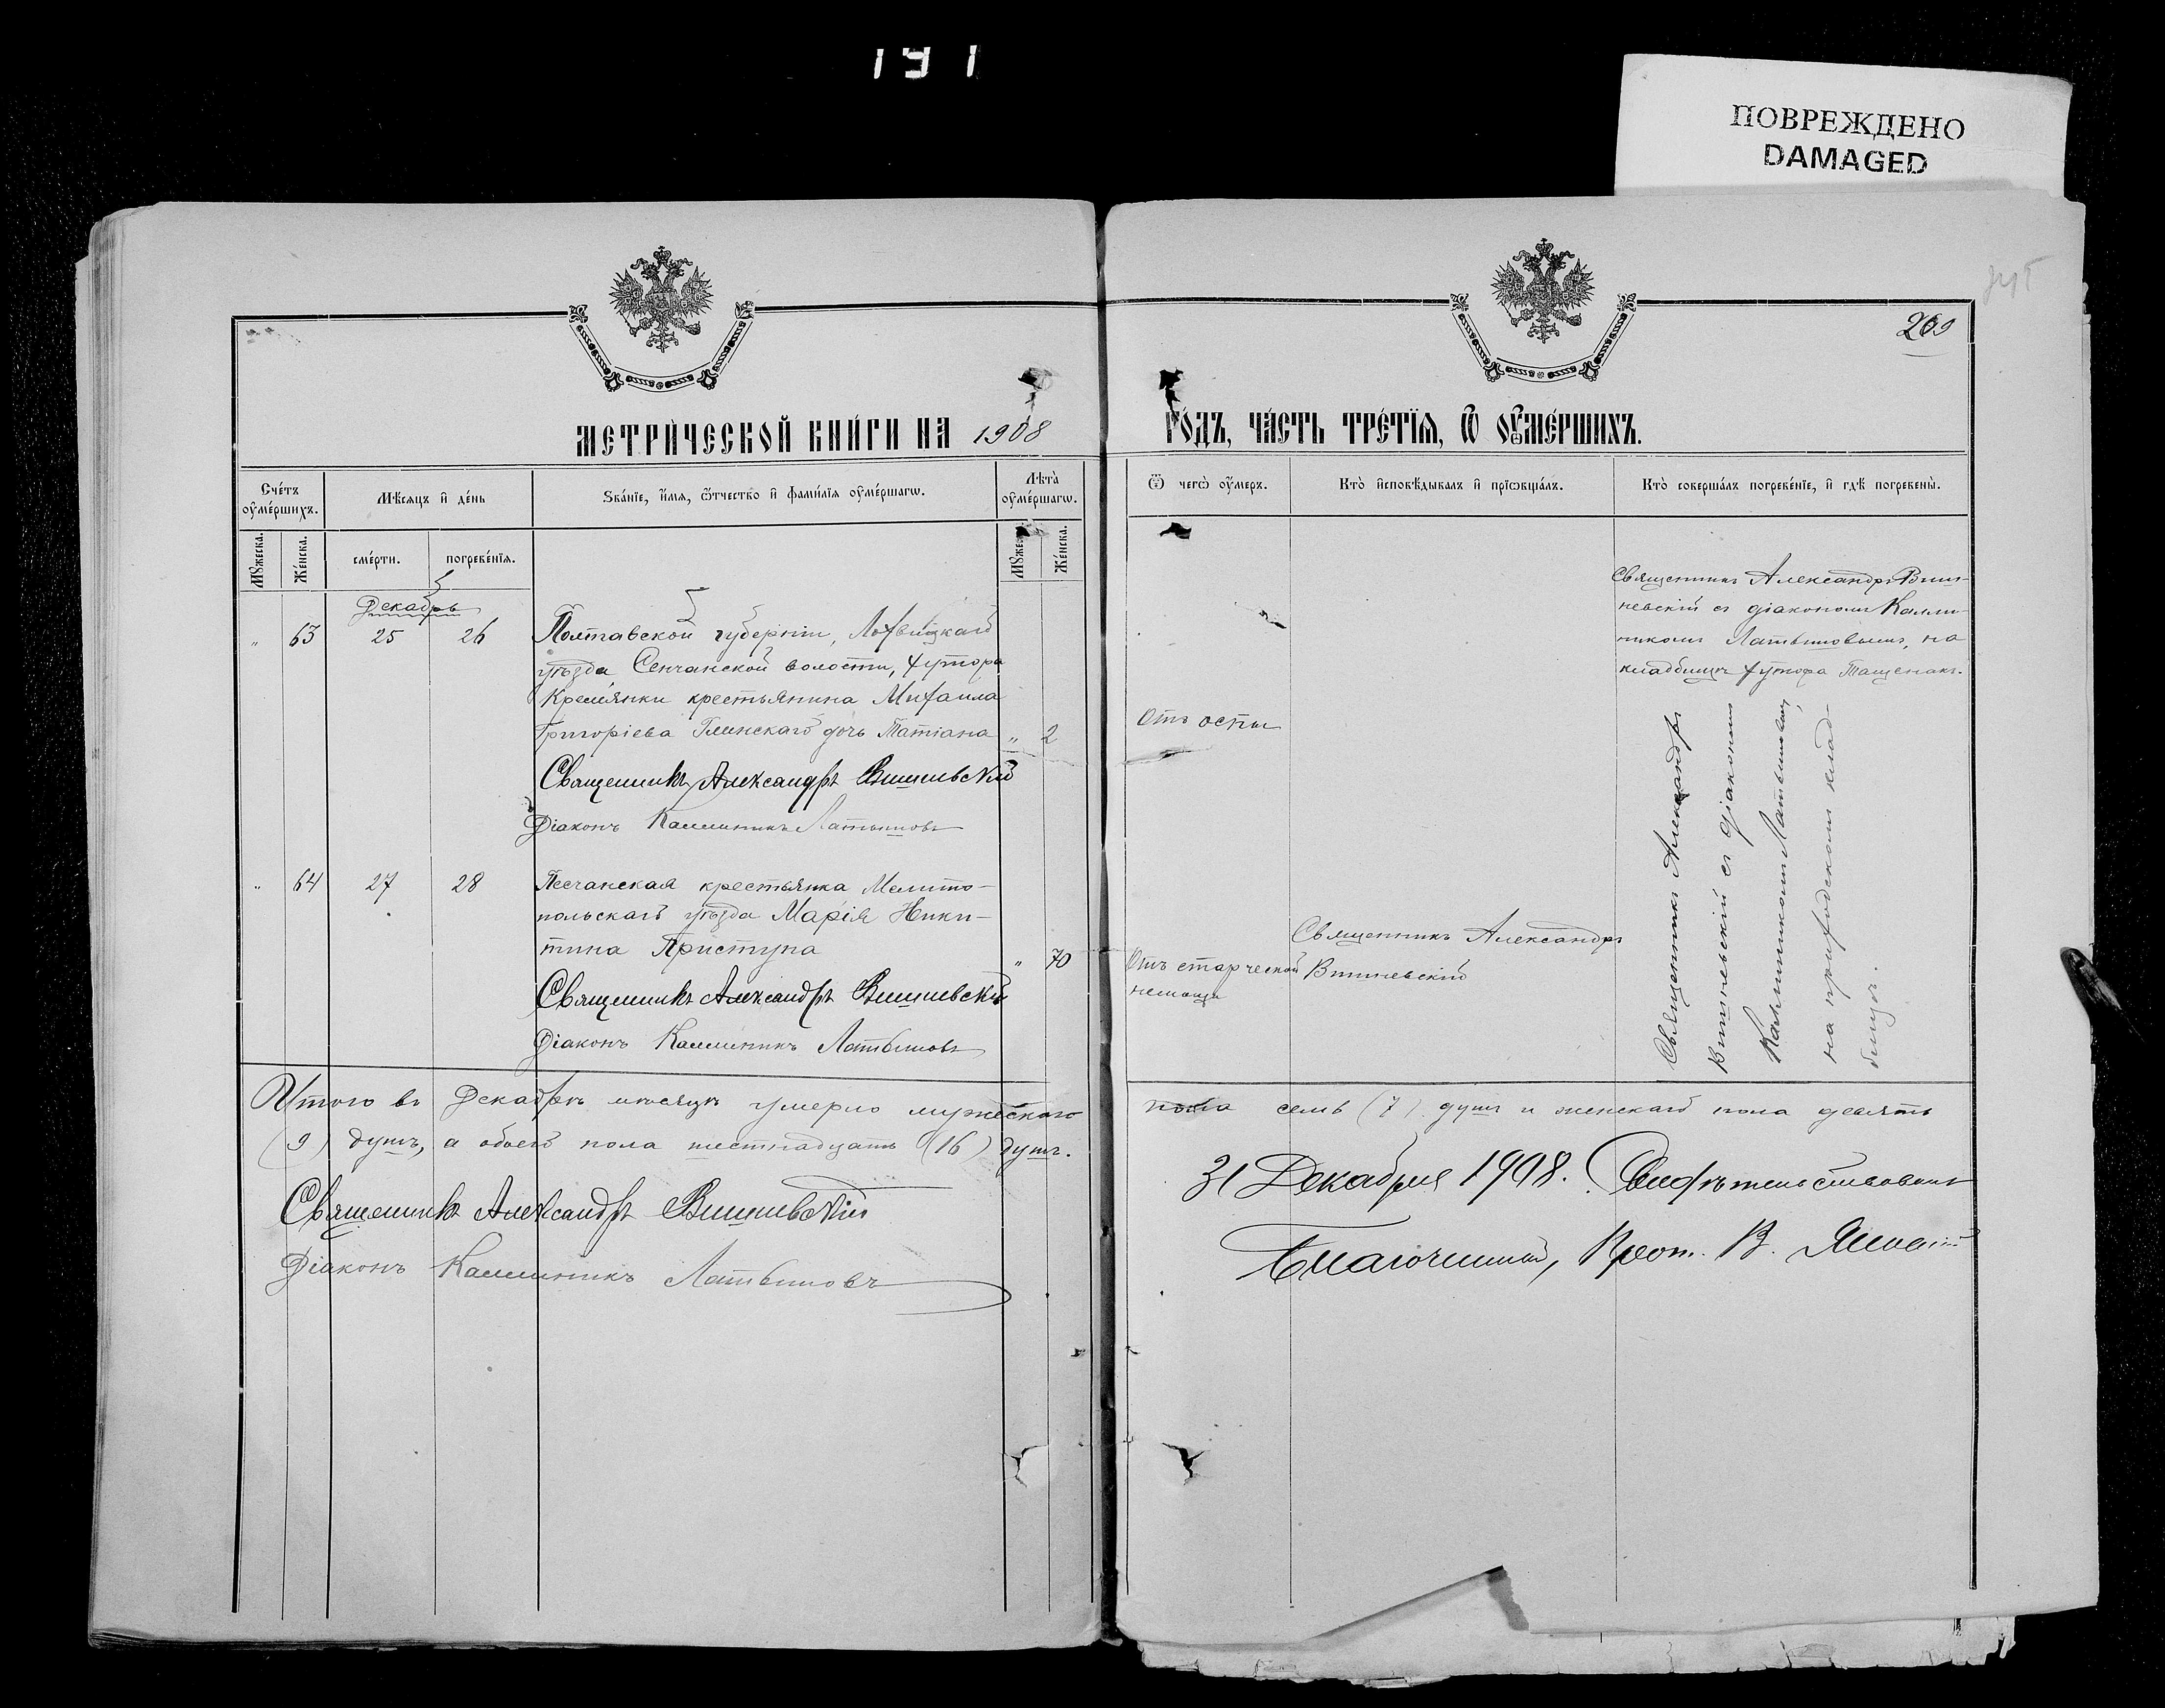 191
ПОВРЕЖДЕНО
DAMAGED
269
МЕТРИ́ЧЕСКОЙ КНИ́ГИ НА 1908 ГО́ДЪ, ЧА́СТЬ ТРЕ́ТЇѦ, Ѡ ОУ҆МЕ́РШИХЪ.
Сче́тъ оу҆ме́ршихъ.
Мѣ́сѧцъ и҆ де́нь
Ѕва́нїе, и҆́мѧ, ѻ҆́тчество и҆ фами́лїѧ оу҆ме́ршагѡ.
Лѣта̀ оу҆ме́ршагѡ.
Ѿ чегѡ̀ оу҆́меръ.
Кто̀ и҆сповѣ́дывалъ и҆ прїѡбща́лъ.
Кто̀ соверша́лъ погребе́нїе, и҆ гдѣ̀ погребены̀.
Мꙋ́жеска.
Же́нска.
сме́рти.
погребе́нїѧ.
Мꙋ́же
Же́нска.
Декабрь
„ 63 25 26
Полтавской губерніи, Лохвицкаго
уѣзда Сенчанской волости, хутора
Кремянки крестьянина Михаила
Григоріева Глинскаго дочь Татіана „ 2
Священникъ Александръ Вишневскій
Діаконъ Каллиникъ Латвиновъ
Отъ оспы
Священникъ Александръ Виш-
невскій съ діакономъ Калли-
никомъ Латвиновымъ, на
кладбищѣ хутора Тащенакъ.
„ 64 27 28
Песчанская крестьянка Мелито-
польскаго уѣзда Марія Ники-
тина Приступа „ 70
Священникъ Александръ Вишневскій
Діаконъ Каллиникъ Латвиновъ
Отъ старческой
немощи
Священникъ Александръ
Вишневскій
Священникъ Александръ
Вишневскій съ діакономъ
Каллиникомъ Латвиновымъ,
на приходскомъ клад-
бищѣ.
Итого въ Декабрѣ мѣсяцѣ умерло мужескаго пола семь (7) душъ и женскаго пола девять
(9) душъ, а обоего пола шестнадцать (16) душъ.
Священникъ Александръ Вишневскій
Діаконъ Каллиникъ Латвиновъ
31 Декабря 1908. Свидѣтельствовалъ
Благочинный, Прот. В.